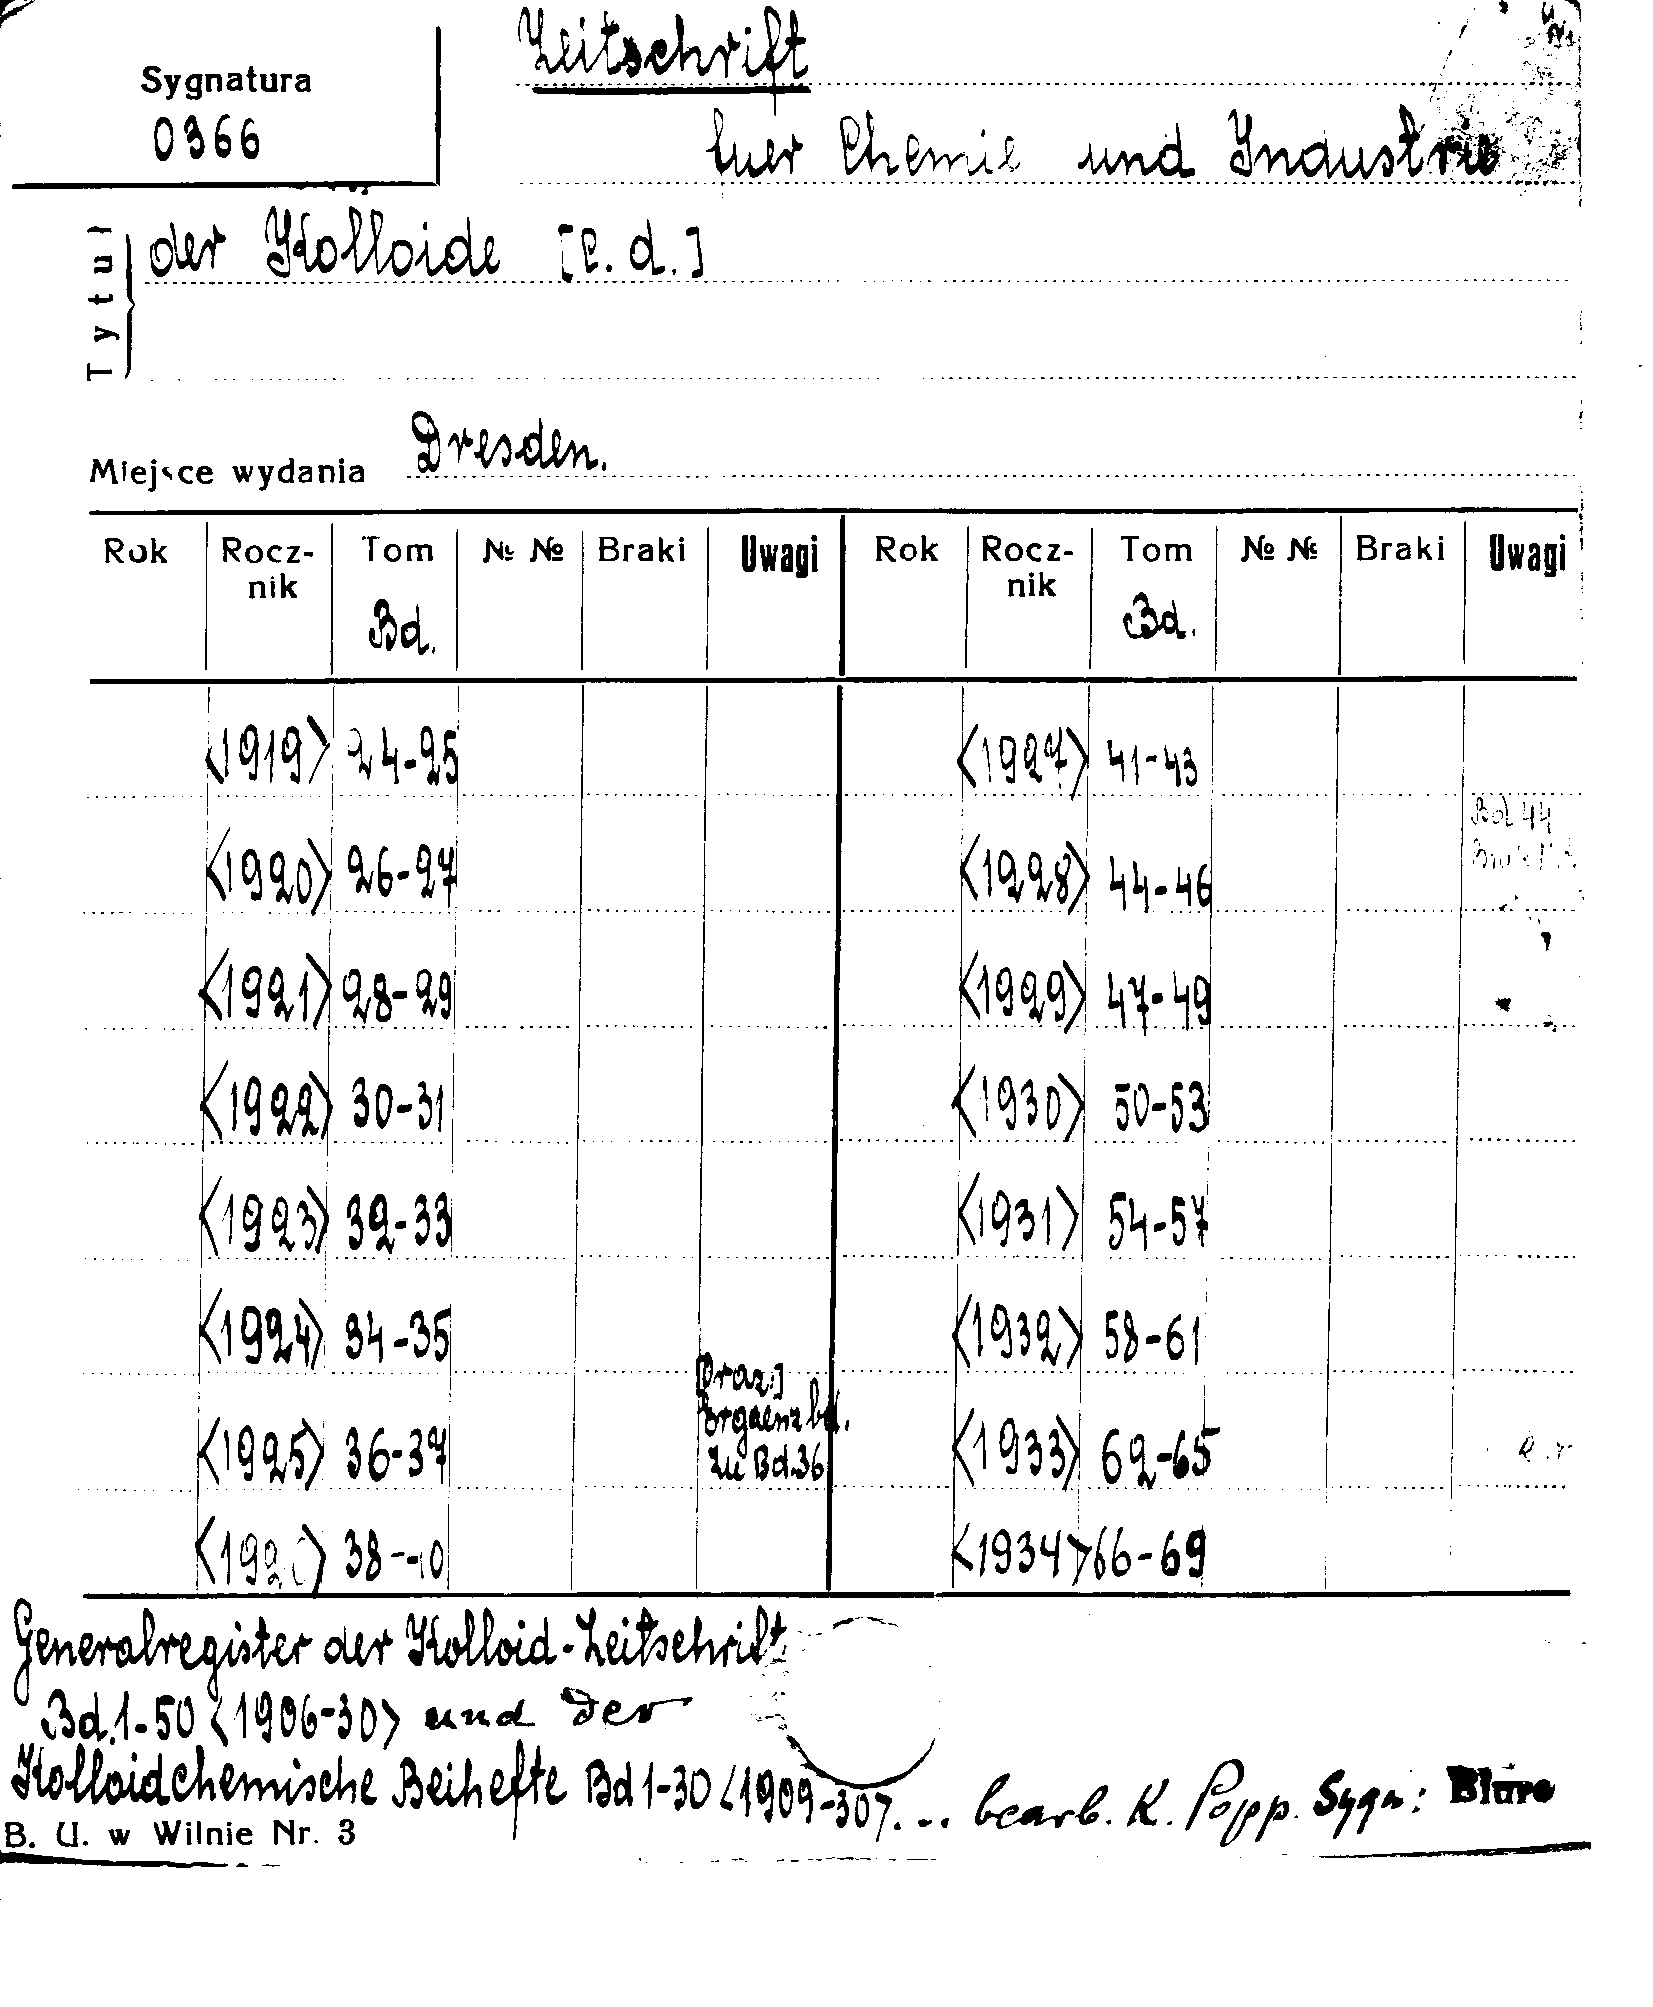 Sygnatura
0366
Zeitschrift
fuer Chemie und Industrie
Tytuł
der Kolloide [c. d.]
Miejsce wydania Dresden.
Rok Rocz-nik Tom Bd. № № Braki Uwagi Rok Rocz-nik Tom Bd. № № Braki Uwagi
<1919> 24-25 <1927> 41-43
Bd 44
<1920> 26-27 <1928> 44-46
<1921> 28-29 <1929> 47-49
<1922> 30-31 <1930> 50-53
<1923> 32-33 <1931> 54-57
<1924> 34-35 <1932> 58-61
<1925> 36-37 [oraz] Ergaenzbd. zu Bd.36 <1933> 62-65
38-40 <1934> 66-69
Generalregister der Kolloid-Zeitschrift
Bd.1-50 <1906-30> und der
Kolloidchemische Beihefte Bd 1-30 <1909-30>... bearb. K. Popp. Sygn: Biuro
B. U. w Wilnie Nr. 3